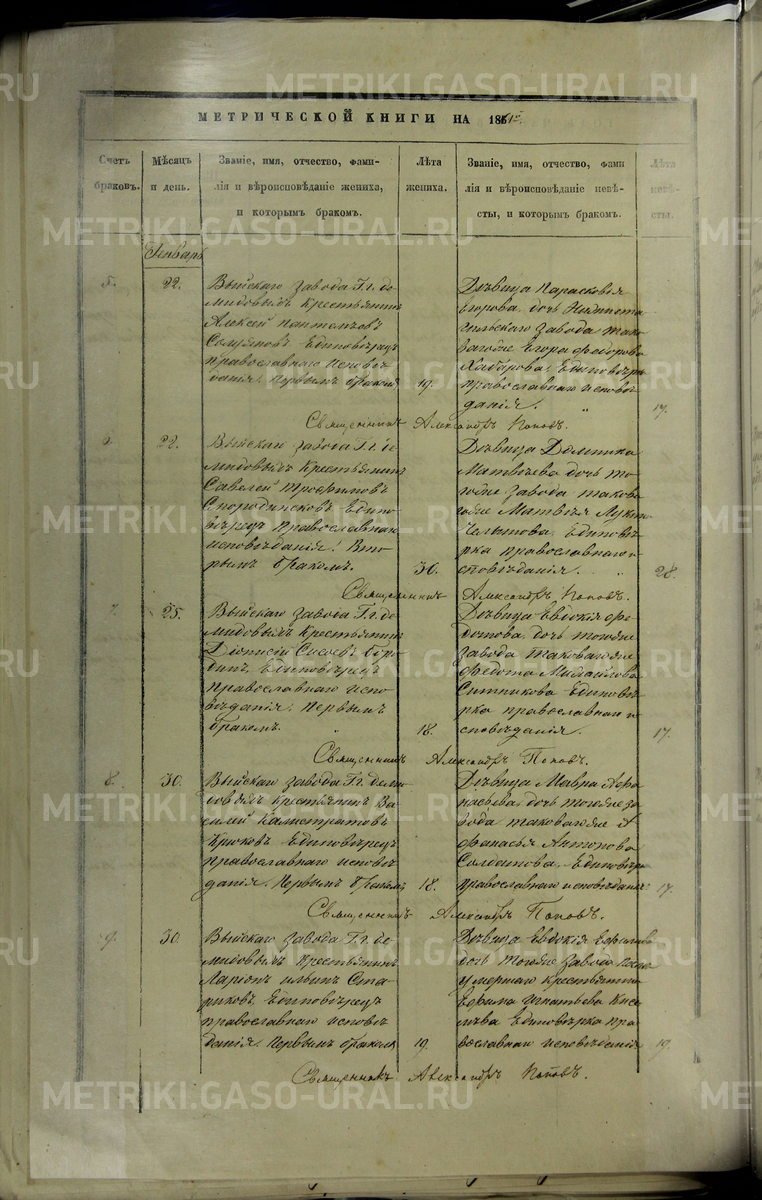 METRIKI.GASO-URAL.RU
МЕТРИЧЕСКОЙ КНИГИ НА 1861й
Счетъ браковъ.
Мѣсяцъ и день.
Званіе, имя, отчество, фами-
лія и вѣроисповѣданіе жениха,
и которымъ бракомъ.
Лѣта жениха.
Званіе, имя, отчество, фами
лія и вѣроисповѣданіе невѣ-
сты, и которымъ бракомъ.
Лѣта невѣ-
сты.
Генварь
5. 22.
Выйскаго завода Г.г. Де
мидовыхъ крестьянинъ
Алексей Пантелѣевъ
Единовѣрецъ
православнаго исповѣ
данія. Первымъ бракомъ
19.
Дѣвица Парасковья
Егорова дочь Нижнета
гильскаго завода тако
вагоже Егора Федорова
Хабарова, Единовѣрка
православнаго исповѣ
данія.
17.
Священникъ Александръ Поповъ.
6. 22.
Выйскаго завода Г.г. Де
мидовыхъ крестьянинъ
Савелей Трофимовъ
Едино
вѣрецъ православнаго
исповѣданія. Вто
рымъ бракомъ.
30.
Дѣвица
Матвѣева дочь то
гоже завода таково
гоже Матвѣя
Единовѣ
рка православнаго и
сповѣданія.
28.
Священникъ Александръ Поповъ.
7. 25.
Выйскаго завода Г.г. Де
мидовыхъ крестьянинъ
Діонисій Сысоевъ Боро
динъ, Единовѣрецъ
православнаго испо
вѣданія. Первымъ
бракомъ.
18.
Дѣвица Евдокія Фе
дотова дочь тогоже
завода таковагоже
Федота Михайлова
Ситникова Единовѣ
рка православнаго и
сповѣданія.
17.
Священникъ Александръ Поповъ.
8. 30.
Выйскаго завода Г.г. Деми
довыхъ крестьянинъ Ва
силей Калистратовъ
Крюковъ Единовѣрецъ
православнаго исповѣ
данія. Первымъ бракомъ
18.
Дѣвица Мавра Афа
насьева дочь тогоже за
вода таковагоже А
фанасья Антонова
Солдатова. Единовѣрка
православнаго исповѣданія
17.
Священникъ Александръ Поповъ.
9. 30.
Выйскаго завода Г.г. Де
мидовыхъ крестьянинъ
Ларіонъ Ильинъ Ста
риковъ, Единовѣрецъ
православнаго исповѣ
данія. Первымъ бракомъ
19.
Дѣвица Евдокія Ефимова
дочь тогоже завода
умершаго крестьянина
Ефима Игнатьева Кисе
лѣва Единовѣрка пра
вославнаго исповѣданія
19.
Священникъ Александръ Поповъ.